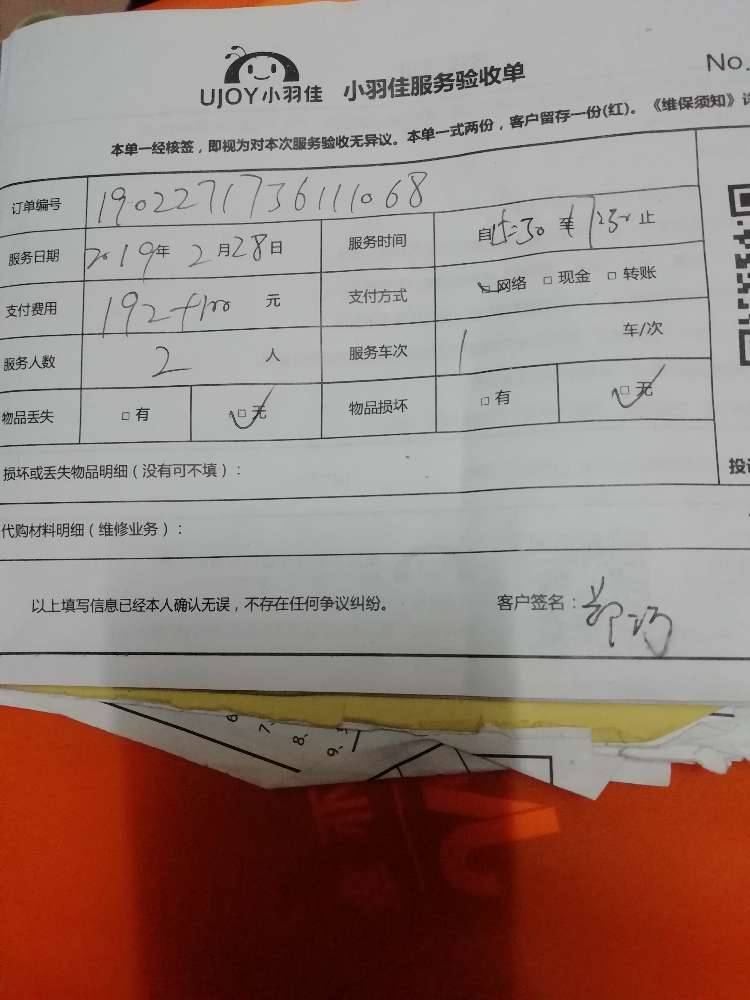 UJOY小羽佳 小羽佳服务验收单 No.
本单一经核签，即视为对本次服务验收无异议。本单一式两份，客户留存一份(红)。《维保须知》
订单编号 1902271736111068
服务日期 2019年2月28日 服务时间 自15:30至17:30止
支付费用 192+100 元 支付方式 □网络 □现金 □转账
服务人数 2 人 服务车次 1 车/次
物品丢失 □有 □无 物品损坏 □有 □无
投
损坏或丢失物品明细（没有可不填）：
代购材料明细（维修业务）：
以上填写信息已经本人确认无误，不存在任何争议纠纷。 客户签名：
6
7、
8、
9、